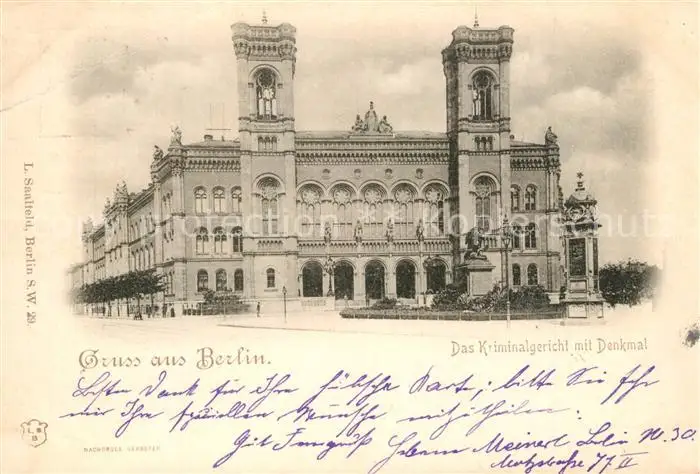 L. Saalfeld, Berlin S.W. 29.
Das Kriminalgericht mit Denkmal
Gruss aus Berlin.
Besten Dank für Ihre hübsche Karte; bitte Sie
mir Ihre speziellen Wünsche mitzuteilen:
Gut
Meinert Berlin N. 30
L. S. B
NACHDRUCK VERBOTEN
77 II